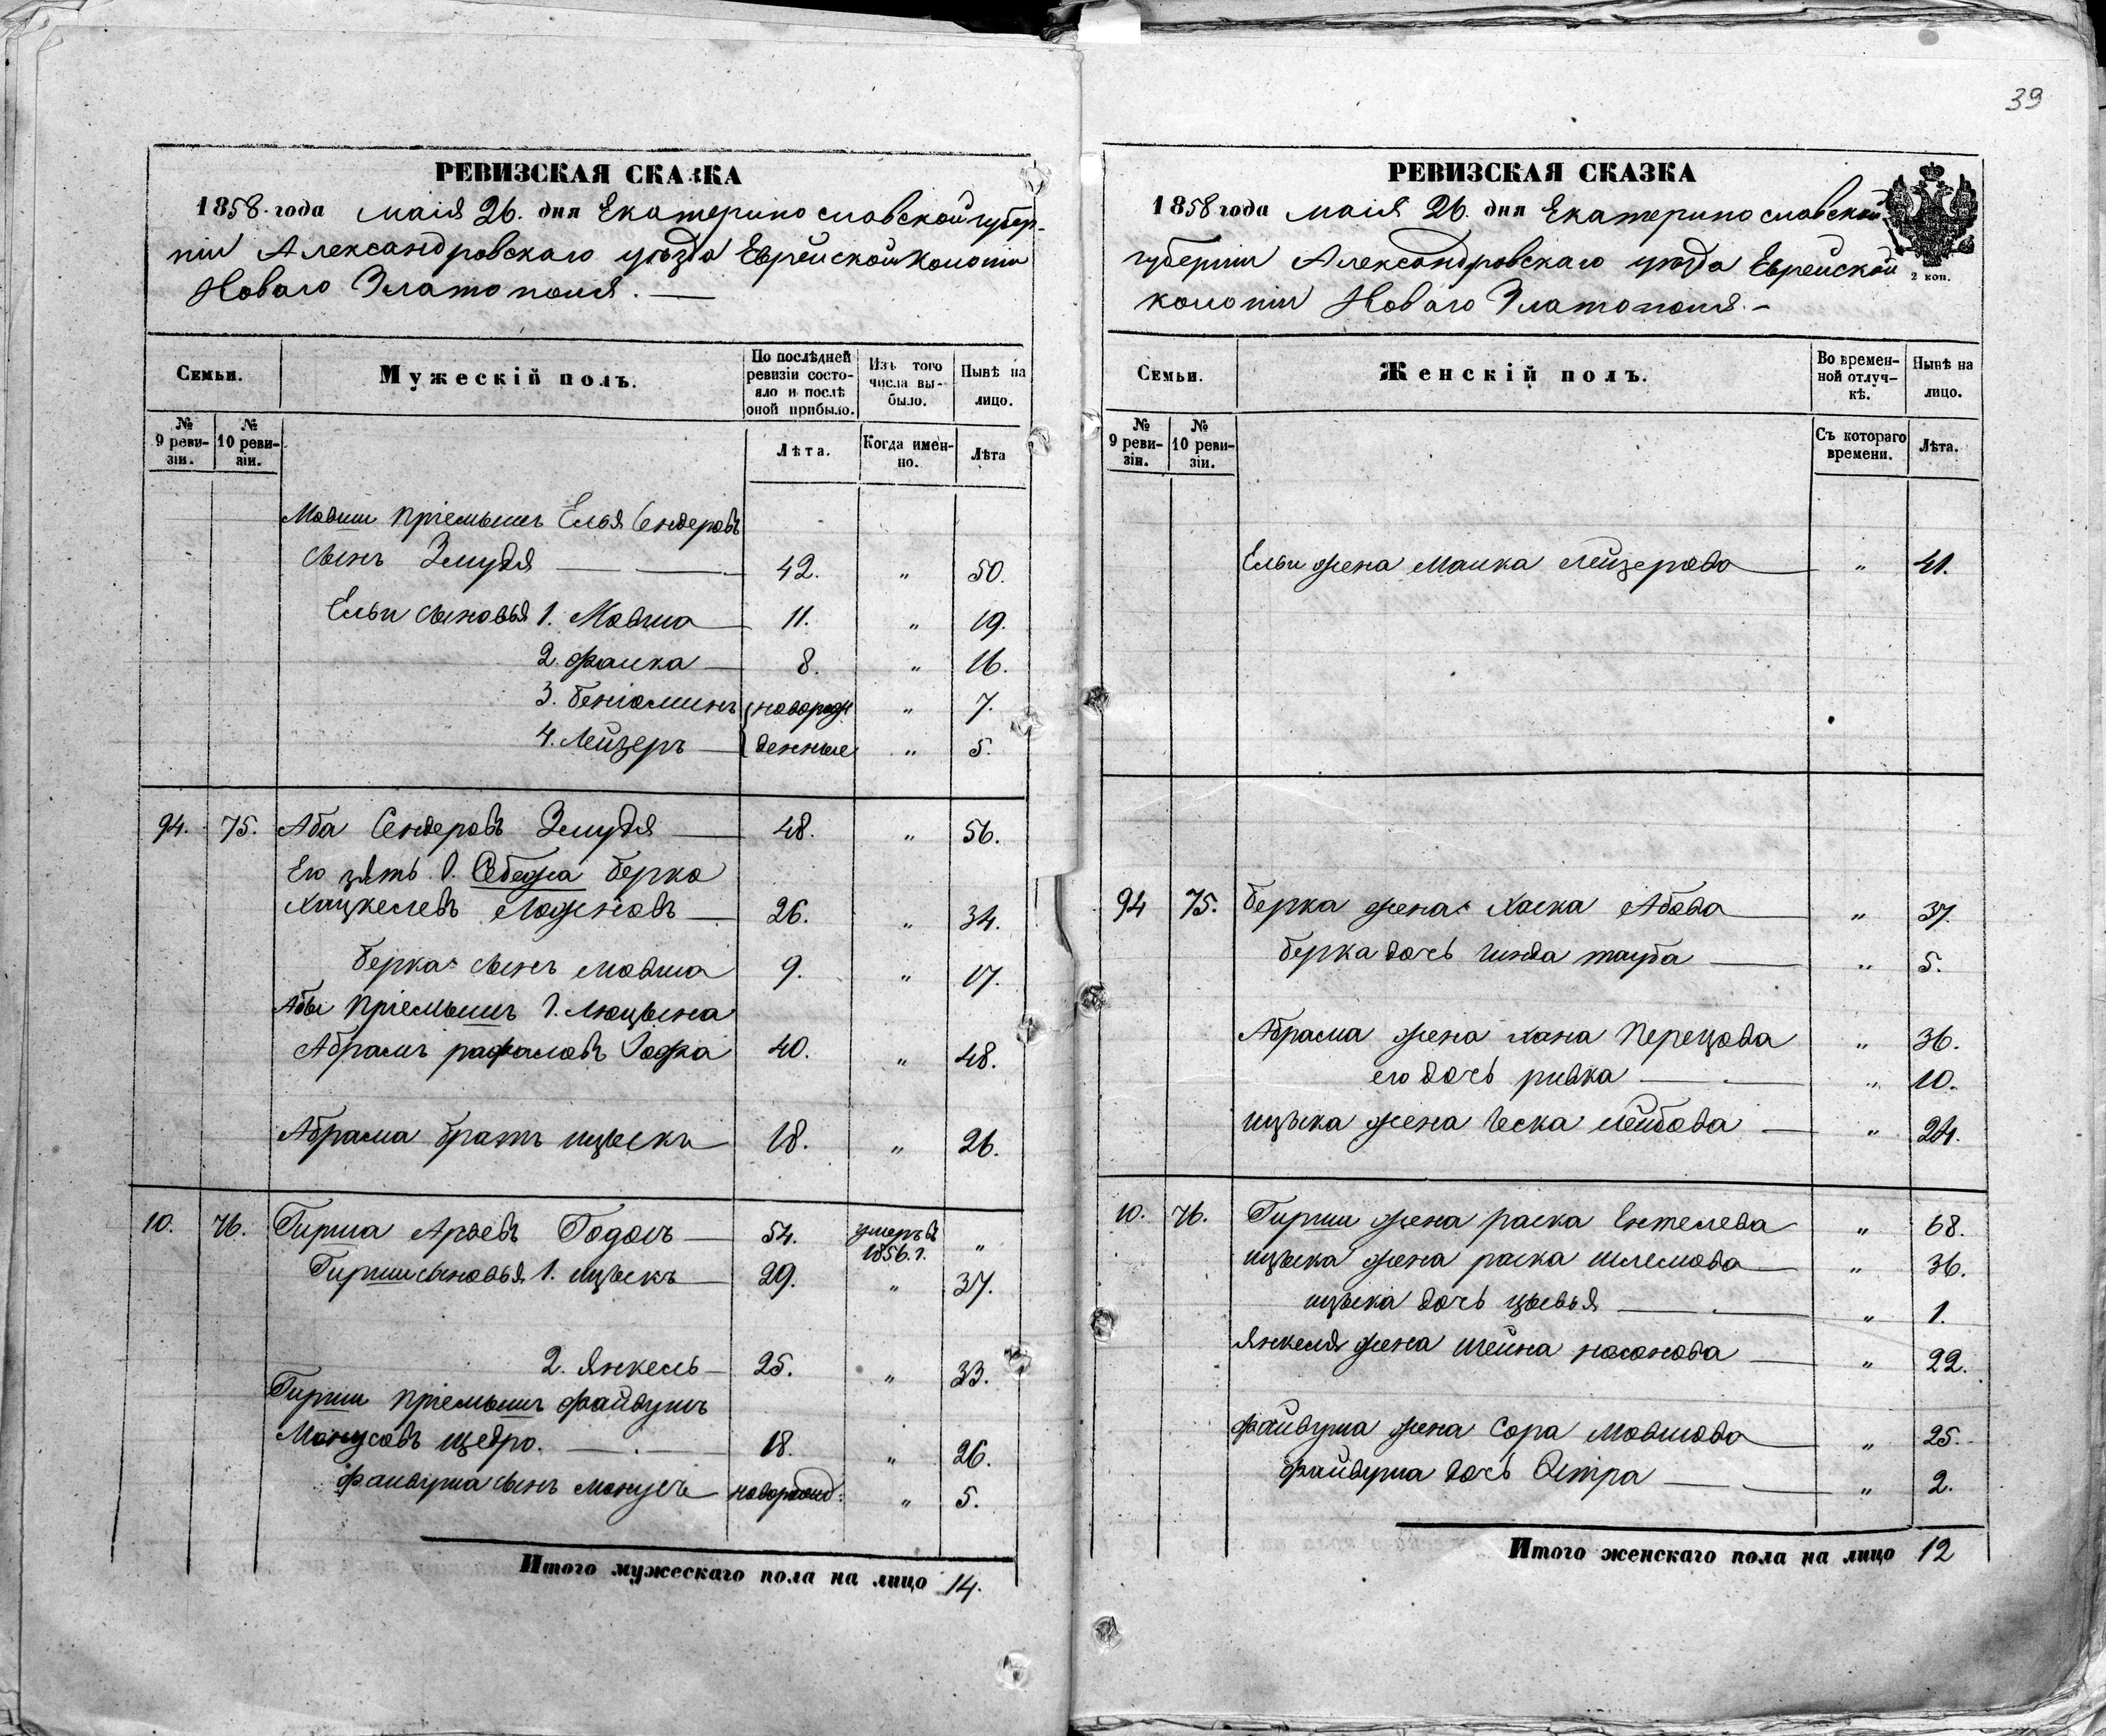 РЕВИЗСКАЯ СКАЗКА
1858 года маія 26. дня Екатеринославской губер-
ніи Александровскаго уѣзда Еврейской Колоніи
Новаго Златополя. —
Семьи.
Мужескій полъ.
По послѣдней ревизіи состо-яло и послѣ оной прибыло.
Изъ того числа вы-было.
Нынѣ на лицо.
№ 9 реви-зіи.
№ 10 реви-зіи.
Лѣта.
Когда имен-но.
Лѣта
Мовши пріемышъ Елья Сендеровъ
сынъ Змудя — 42. " 50.
Ельи сыновья 1. Мовша — 11. " 19.
2. Фалка — 8. " 16.
3. Беніоминъ новорож " 7.
4. Лейзеръ — денные " 5.
94. 75. Аба Сендеровъ Змудя — 48. " 56.
Его зять Г. Себежа Берка
Хацкелевъ — 26. " 34.
Берка сынъ Мовша 9. " 17.
Абы пріемышъ Г. Люцына
Абрамъ рафаловъ 40. " 48.
Абрама братъ ицыкъ 18. " 26.
10. 76. Гирша Арьевъ Годолъ — 54. умеръ въ 1856. г. "
Гирши сыновья 1. ицыкъ — 29. " 37.
2. Янкель — 25. " 33.
Гирши пріемышъ Файвушъ
Монусовъ щедро. — 18. " 26.
Файвуша сынъ Монусъ новорожд: " 5.
Итого мужескаго пола на лицо 14.
39
РЕВИЗСКАЯ СКАЗКА
1858 года маія 26. дня Екатеринославской
губерніи Александровскаго уѣзда Еврейской
колоніи Новаго Златополя. –
2 коп.
Семьи.
Женскій полъ.
Во времен-ной отлуч-кѣ.
Нынѣ на лицо.
№ 9 реви-зіи.
№ 10 реви-зіи.
Съ котораго времени.
Лѣта.
Ельи жена Малка Лейзерова — " 41.
94 75. Берка жена Хаска Абова — " 37.
Берка дочь Гинда тауба — " 5.
Абрама жена Хана Перецова " 36.
его дочь ривка — " 10.
ицыка жена Ческа Лейбова — " 24.
10. 76. Гирши жена раска Ентелева " 68.
ицыка жена раска шлемова — " 36.
ицыка дочь цывья — " 1.
Янкеля жена шейна носонова — " 22.
Файвуша жена Сора Мовшова — " 25.
Файвуша дочь Естра — " 2.
Итого женскаго пола на лицо 12